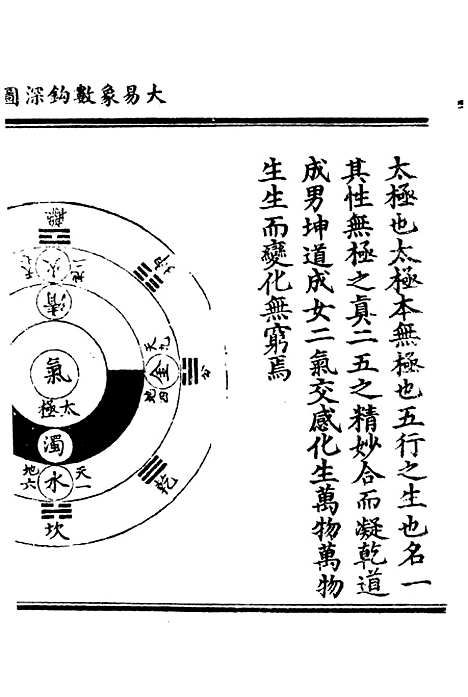 大易象數鈎深圖
太極也太極本無極也五行之生也各一
其性無極之真二五之精妙合而凝乾道
成男坤道成女二氣交感化生萬物萬物
生生而變化無窮焉
離
火
地二
清
氣
太極
濁
水
天一
地六
坎
坤
兌
金
天九
地四
乾